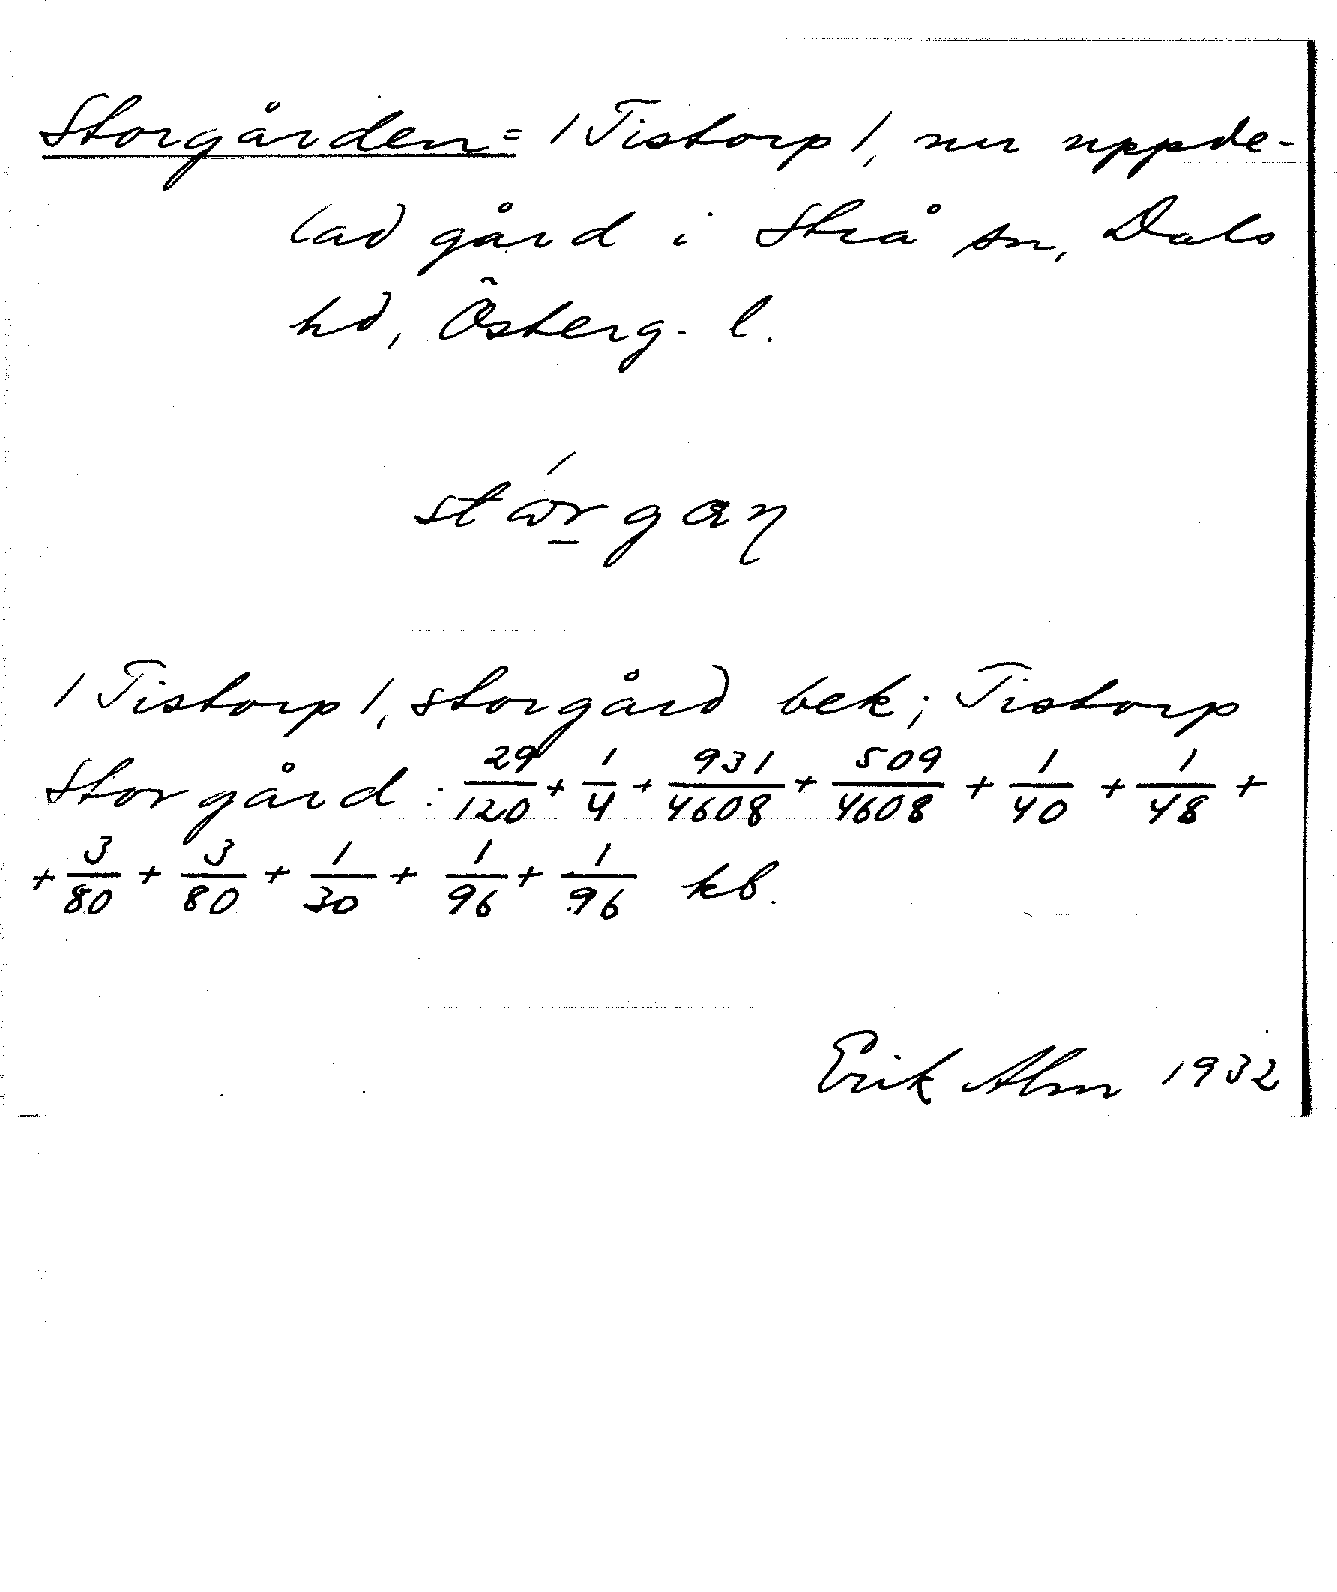 Storgården = / Tistorp /, nu uppde-
lad gård i Strå sn, Dals
hd, Österg. l.
stórgan
/ Tistorp /, storgård bek; Tistorp
Storgård: 29/120 + 1/4 + 931/4608 + 509/4608 + 1/40 + 1/48 +
+ 3/80 + 3/80 + 1/30 + 1/96 + 1/96 kb.
Erik Alm 1932